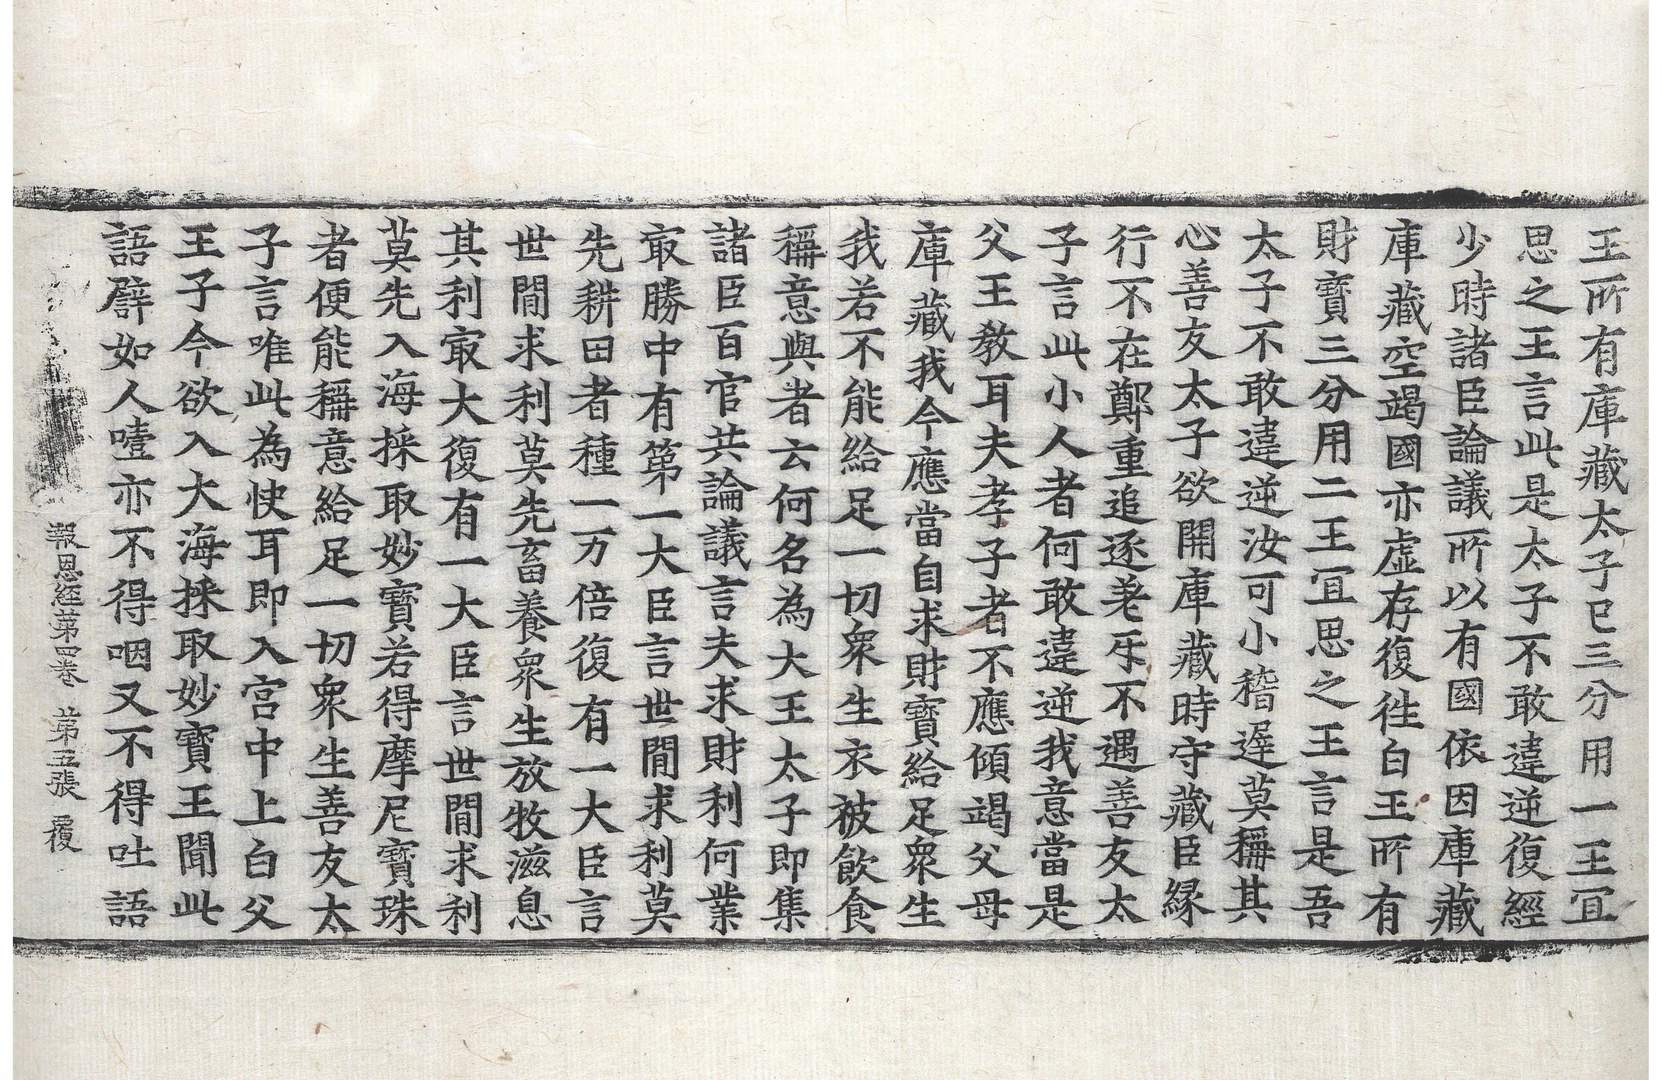 王所有庫藏太子已三分用一王宜
思之王言此是太子不敢違逆復經
少時諸臣論議所以有國依因庫藏
庫藏空竭國亦虛存復往白王所有
財寶三分用二王宜思之王言是吾
太子不敢違逆汝可小稽遲莫稱其
心善友太子欲開庫藏時守藏臣緣
行不在鄭重追逐差互不遇善友太
子言此小人者何敢違逆我意當是
父王教耳夫孝子者不應傾竭父母
庫藏我今應當自求財寶給足眾生
我若不能給足一切眾生衣被飲食
稱意與者云何名為大王太子即集
諸臣百官共論議言夫求財利何業
冣勝中有第一大臣言世間求利莫
先耕田者種一万倍復有一大臣言
世間求利莫先畜養眾生放牧滋息
其利冣大復有一大臣言世間求利
莫先入海採取妙寶若得摩尼寶珠
者便能稱意給足一切眾生善友太
子言唯此為快耳即入宮中上白父
王子今欲入大海採取妙寶王聞此
語譬如人噎亦不得咽又不得吐語
報恩經第四卷 第五張 覆